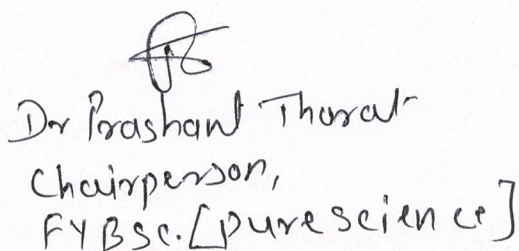 Dr Prashant Thorat
Chairperson,
FYBSc. [purescience]